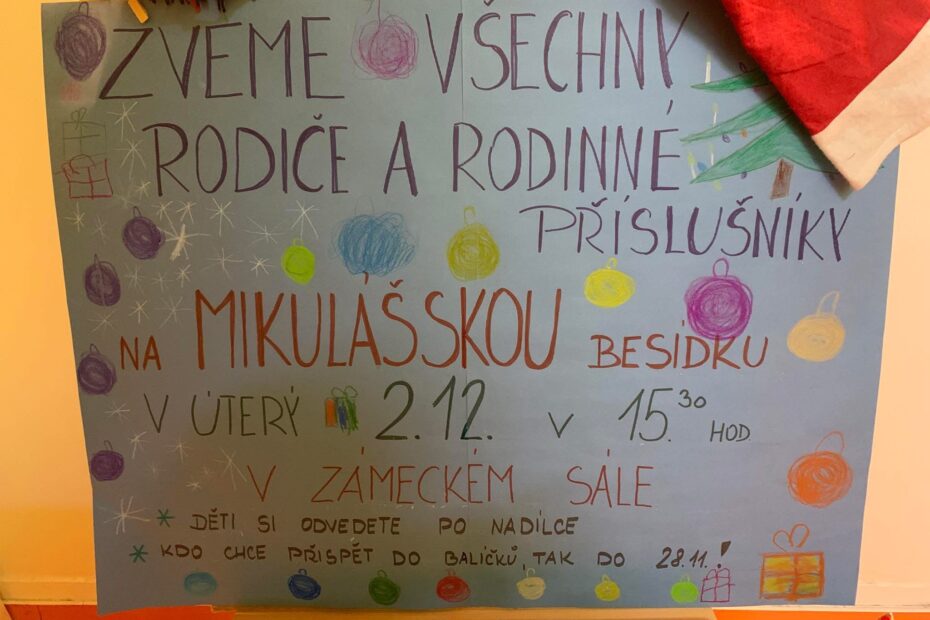 ZVEME VŠECHNY
RODIČE A RODINNÉ
PŘÍSLUŠNÍKY
NA MIKULÁŠSKOU BESÍDKU
V ÚTERÝ 2.12. v 15.30 HOD.
V ZÁMECKÉM SÁLE
* DĚTI SI ODVEDETE PO NADÍLCE
* KDO CHCE PŘISPĚT DO BALÍČKŮ, TAK DO 28.11.!